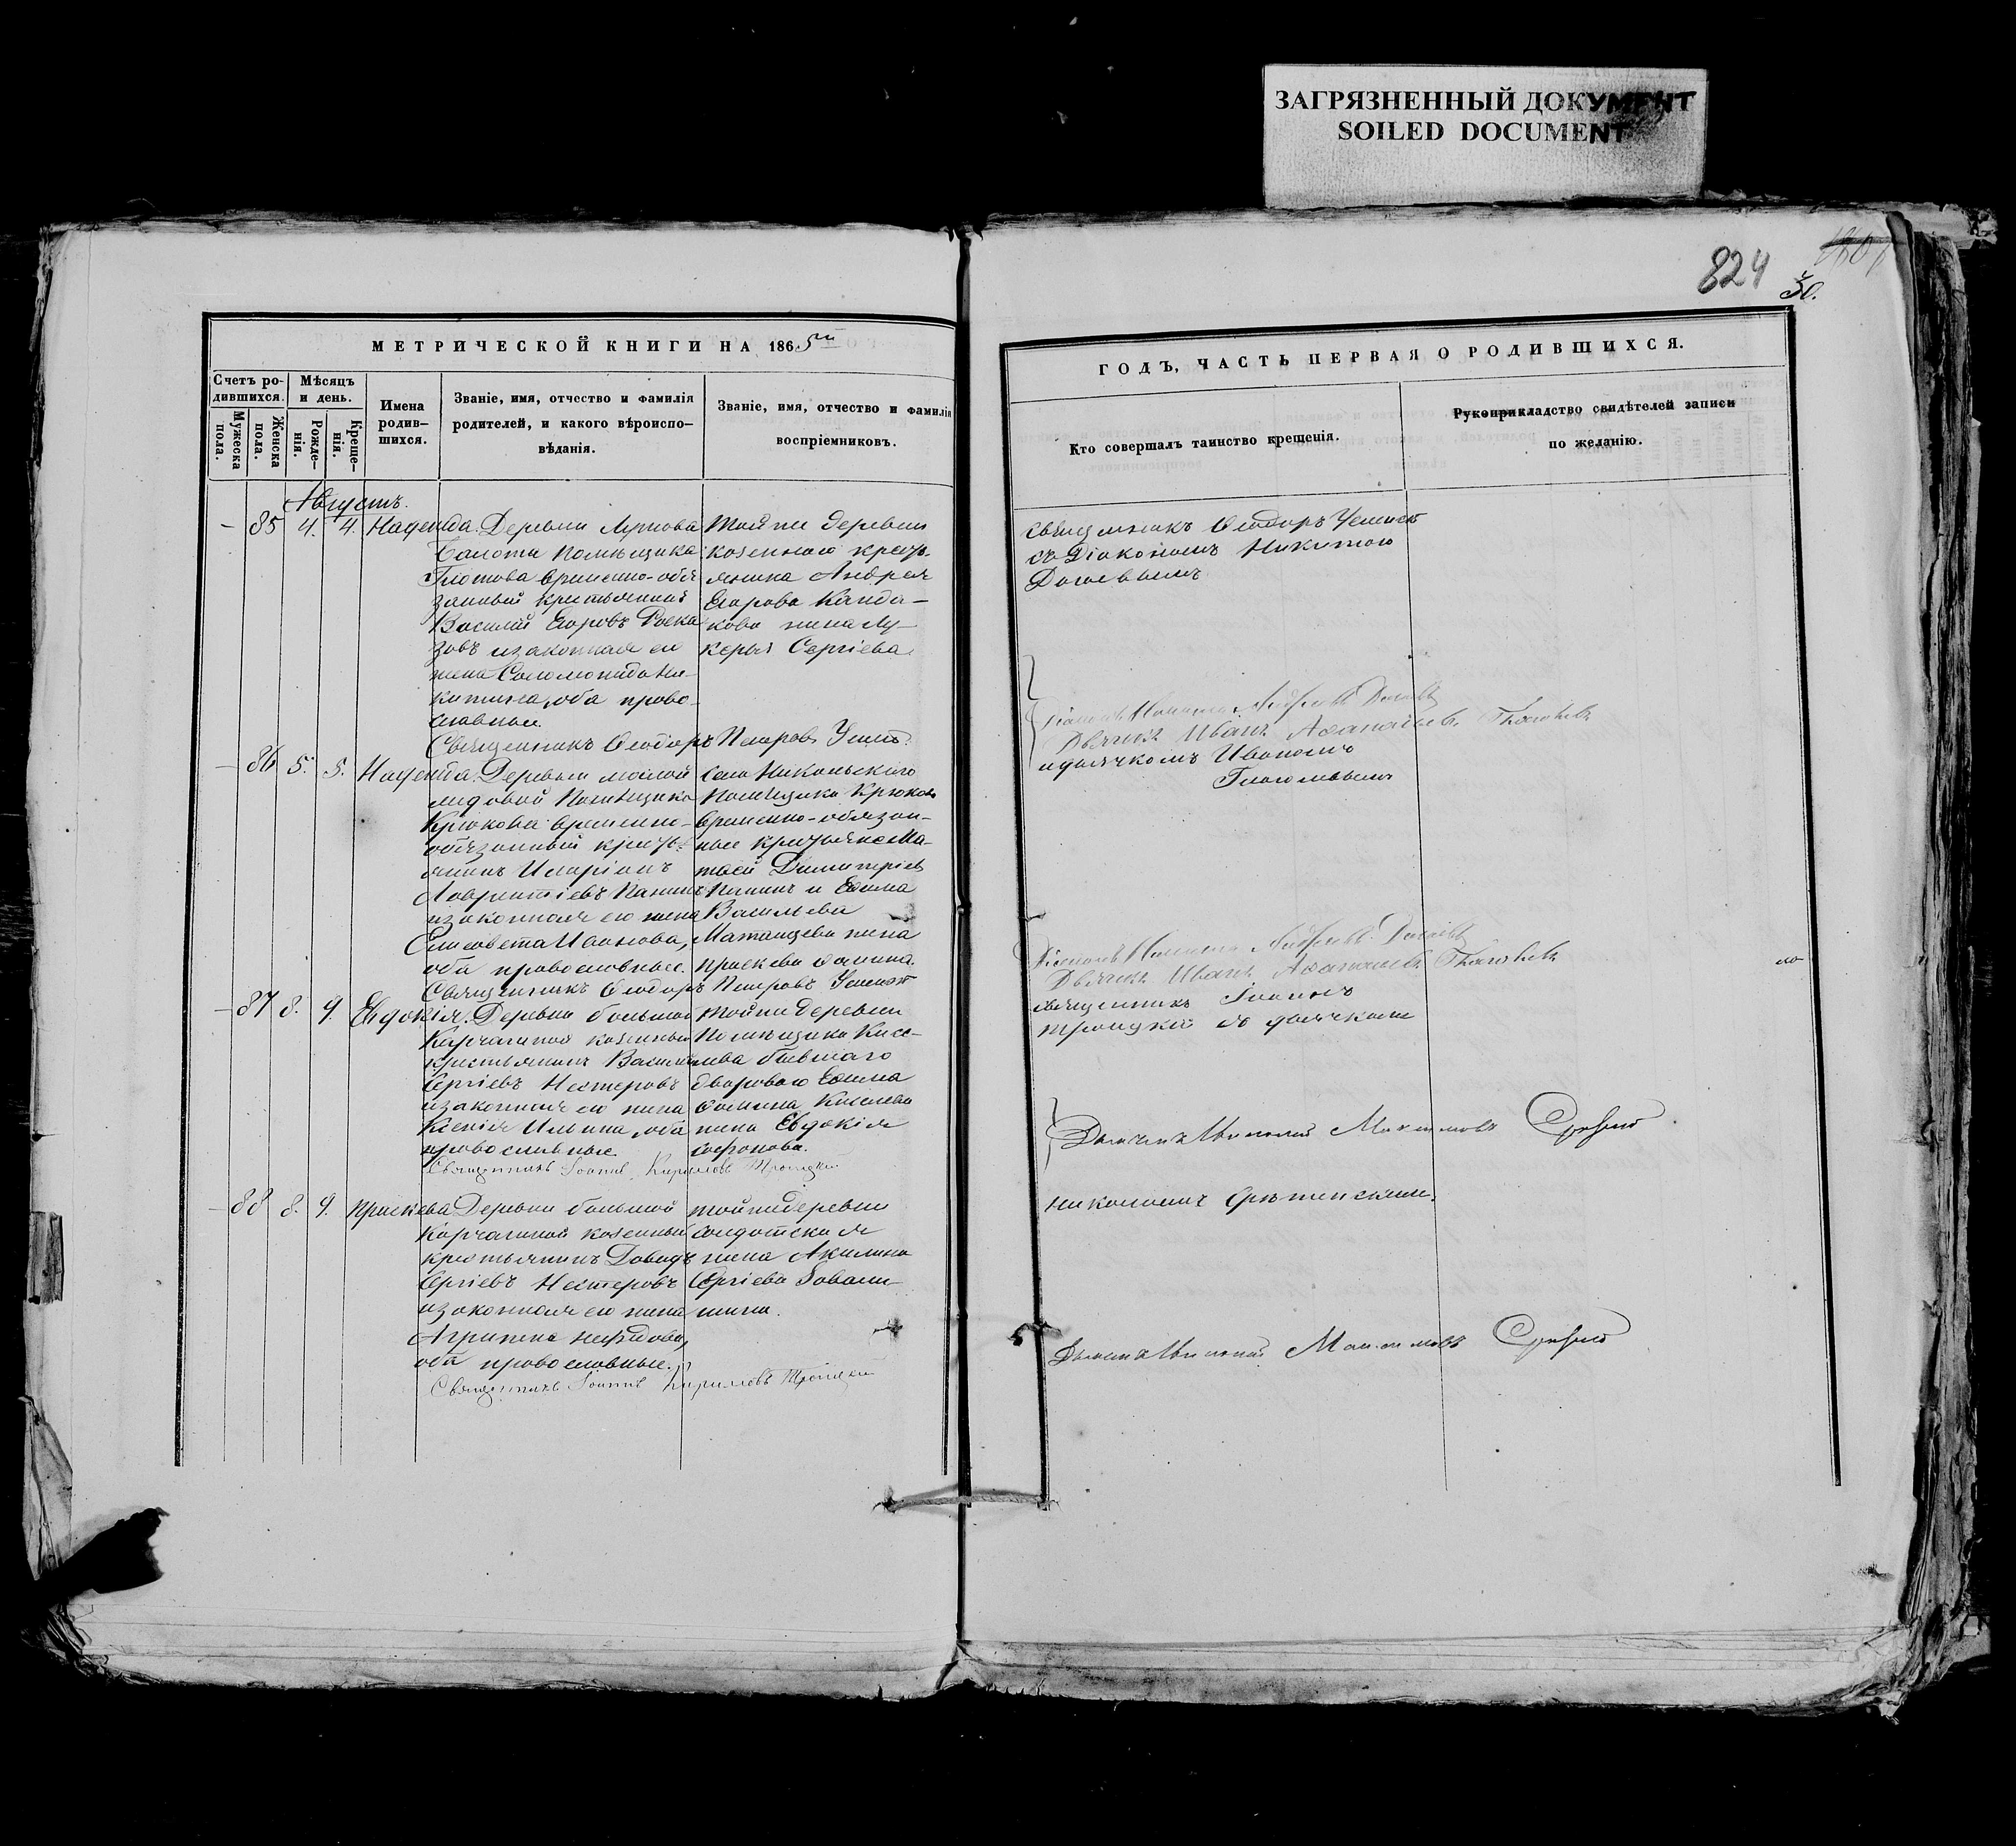 ЗАГРЯЗНЕННЫЙ ДОКУМЕНТ
SOILED DOCUMENT
824
30.
МЕТРИЧЕСКОЙ КНИГИ НА 1865
Счетъ родившихся.
Мѣсяцъ и день.
Мужеска пола.
Женска пола.
Рожденія.
Крещенія.
Имена родив-
шихся.
Званіе, имя, отчество и фамилія
родителей, и какого вѣроиспо-
вѣданія.
Званіе, имя, отчество и фамилія
воспріемниковъ.
Августъ.
85 4. 4. Надежда.
Деревни Лутова
Болота Помѣщика
Глотова временно-обя
занный крестьянинъ
Василій Егоровъ
зовъ изаконная его
жена Соломонида Ни-
китина, оба право-
славные.
Священникъ Ѳеодоръ Петровъ
Тойже деревни
казеннаго кресть-
янина Андрея
Егорова Канда-
кова жена Лу-
керья Сергіева.
86 5. 5. Надежда.
Деревни малой
Помѣщика
Крюкова временно-
обязанный кресть-
янинъ Иларіонъ
Лаврентіевъ Панинъ
изаконная его жена
Елисавета Иванова,
оба православные.
Священникъ Ѳеодоръ Петровъ
Села Никольскаго
Помѣщика Крюкова
временно-обязан-
ные крестьяне Ма-
твей Димитріевъ
Панинъ и Ефима
Васильева
жена
Праскева Фомина.
87 8. 9. Евдокія.
Деревни большой
Карчагиной казенный
крестьянинъ Василій
Сергіевъ Нестеровъ
изаконная его жена
Ксенія Ильина, оба
православные.
Священникъ Іоаннъ Кириловъ Троицкій
Тойже деревни
Помѣщика Кисе-
лева бывшаго
двороваго Ефима
Фомина Киселева
жена Евдокія
Софронова.
88 8. 9. Праскева
Деревни большой
Карчагиной казенный
крестьянинъ Давидъ
Сергіевъ Нестеровъ
изаконная его жена
Агрипена Нефедова,
оба православные.
Священникъ Іоаннъ Кириловъ Троицкій
тойже деревни
солдатская
жена Акилина
Сергіева
шина.
ГОДЪ, ЧАСТЬ ПЕРВАЯ О РОДИВШИХСЯ.
Кто совершалъ таинство крещенія.
Рукоприкладство свидѣтелей записи
по желанію.
Священникъ Ѳеодоръ
съ Діакономъ Никитою
Діаконъ Никита Андреевъ
Дьячекъ Иванъ Аѳанасьевъ
идьячкомъ Иваномъ
Діаконъ Никита Андреевъ
Дьячекъ Иванъ Аѳанасьевъ
священникъ Іоаннъ
Троицкій съ дьячкомъ
Дьячекъ Николай Максимовъ
Николаемъ Срѣтенскимъ.
Дьячекъ Николай Максимовъ